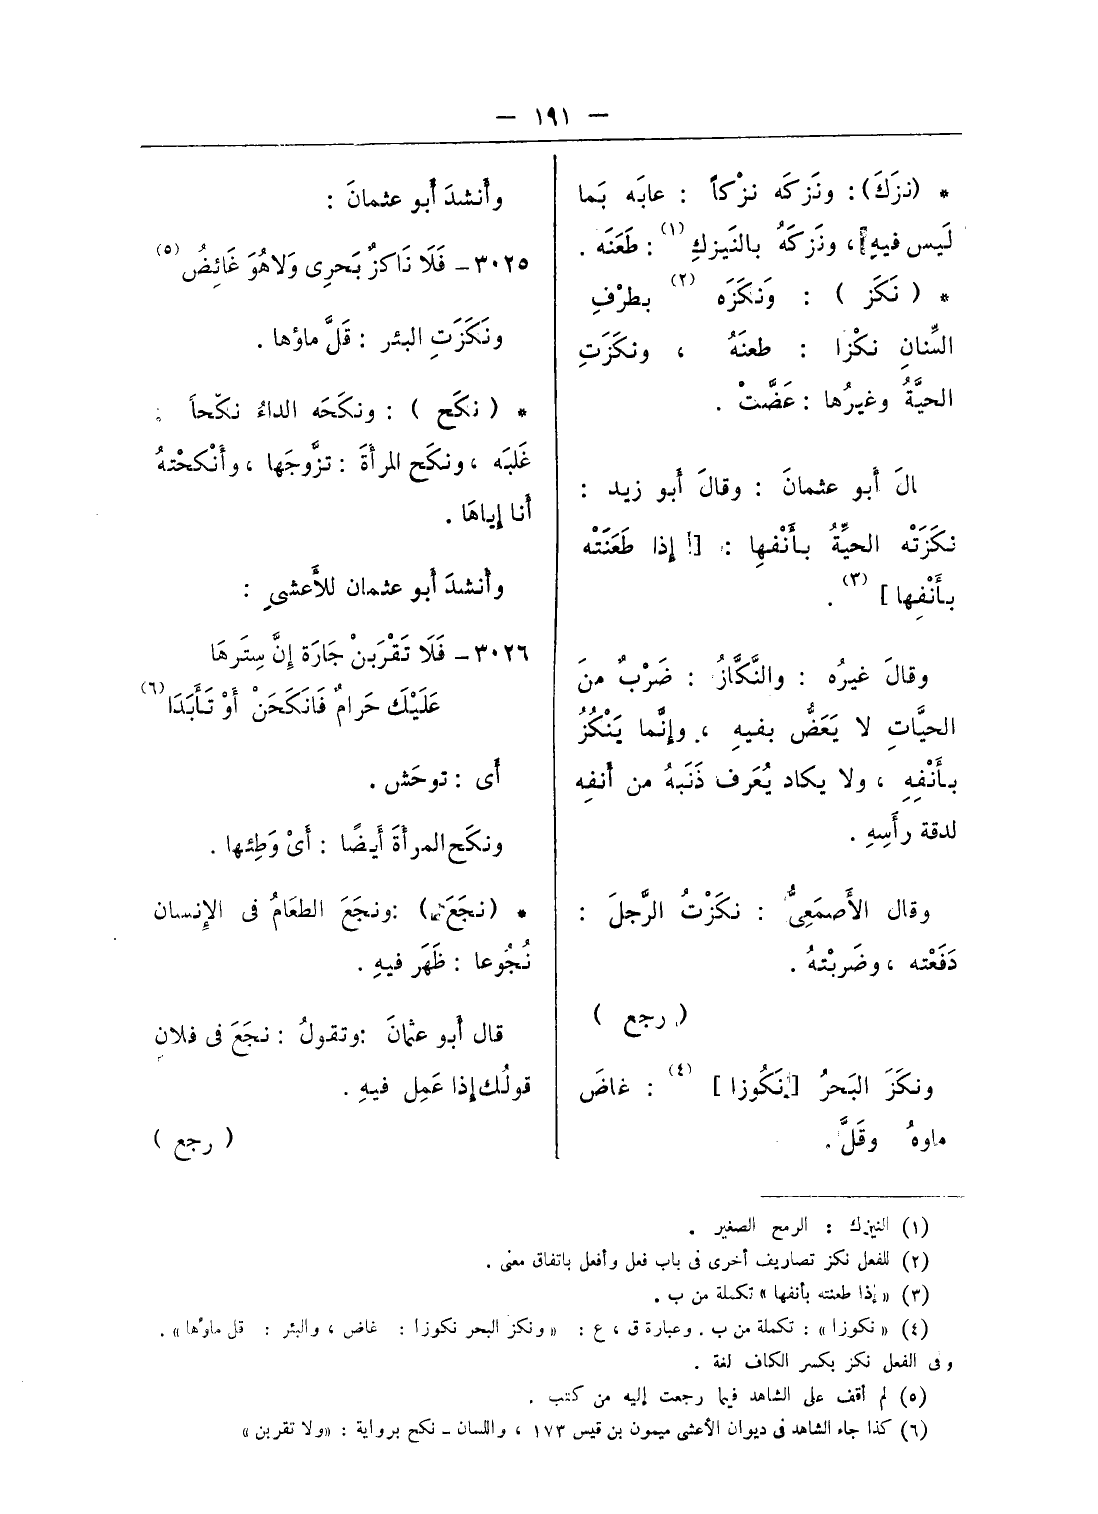 — ١٩١ —
* (نزَكَ): ونَزكَه نزْكاً : عابَه بَما
لَيس فيهِ]، ونَزكَهُ بالنَيزكِ (١) : طَعَنَه .
* ( نَكَز ) : وَنكَزَه (٢) بطرْفِ
السِّنانِ نكْزا : طعنَهُ ، ونكَزَتِ
الحيَّةُ وغيرُها : عَضَّتْ .
الَ أَبو عثمانَ : وقالَ أَبو زيد :
نكَزَتْه الحيَّةُ بأَنْفِها : [ إذا طَعَنَتْه
بأَنْفِها ] (٣) .
وقالَ غيرُه : والنَّكَّازُ : ضَرْبٌ منَ
الحيَّاتِ لا يَعَضُّ بفيهِ ، وإنَّما يَنْكُزُ
بأَنْفِهِ ، ولا يكاد يُعَرف ذَنَبهُ من أَنفِه
لدقة رأَسِهِ .
وقال الأَصمَعِىُّ : نكَزْتُ الرَّجلَ :
دَفَعْته ، وضَربْتهُ .
( رجع )
ونكَزَ البَحرُ [نَكُوزا ] (٤) : غاضَ
ماوهُ وقَلَّ .
وأَنشدَ أَبو عثمانَ :
٣٠٢٥ – فَلَا نَاكزٌ بَحرِى وَلاهُوَ غَائِضُ (٥)
ونَكَزَتِ البئر : قَلَّ ماؤها .
* ( نكَح ) : ونكَحَه الداءُ نكْحاً :
غَلبَه ، ونكَح المرأَةَ : تزَّوجَها ، وأَنْكحْتهُ
أَنا إياهَا .
وأَنشدَ أَبو عثمان للأَعشىِ :
٣٠٢٦ – فَلَا تَقْرَبنْ جَارَة إنَّ سِتَرهَا
عَلَيْك حَرامٌ فَانَكَحَنْ أَوْ تَأَبَدَا (٦)
أَى : توحَش .
ونكَح المرأَةَ أَيضًا : أَىْ وَطِئها .
* (نجَعَ) : ونجَعَ الطعَامُ فى الإِنسان
نُجُوعا : ظَهَر فيهِ .
قال أَبو عثْمانَ : وتقولُ : نجَعَ فى فلانٍ
قولُك إذا عَمِل فيهِ .
( رجع )
(١) النيزك : الرمح الصغير .
(٢) للفعل نكز تصاريف أخرى فى باب فعل وأفعل باتفاق معنى .
(٣) « إذا طعنته بأنفها » تكملة من ب .
(٤) « نكوزا » : تكملة من ب . وعبارة ق ، ع : « ونكز البحر نكوزا : غاض ، والبئر : قل ماؤها » .
وفى الفعل نكز بكسر الكاف لغة .
(٥) لم أقف على الشاهد فيما رجعت إليه من كتب .
(٦) كذا جاء الشاهد فى ديوان الأعشى ميمون بن قيس ١٧٣ ، واللسان – نكح برواية : «ولا تقربن»